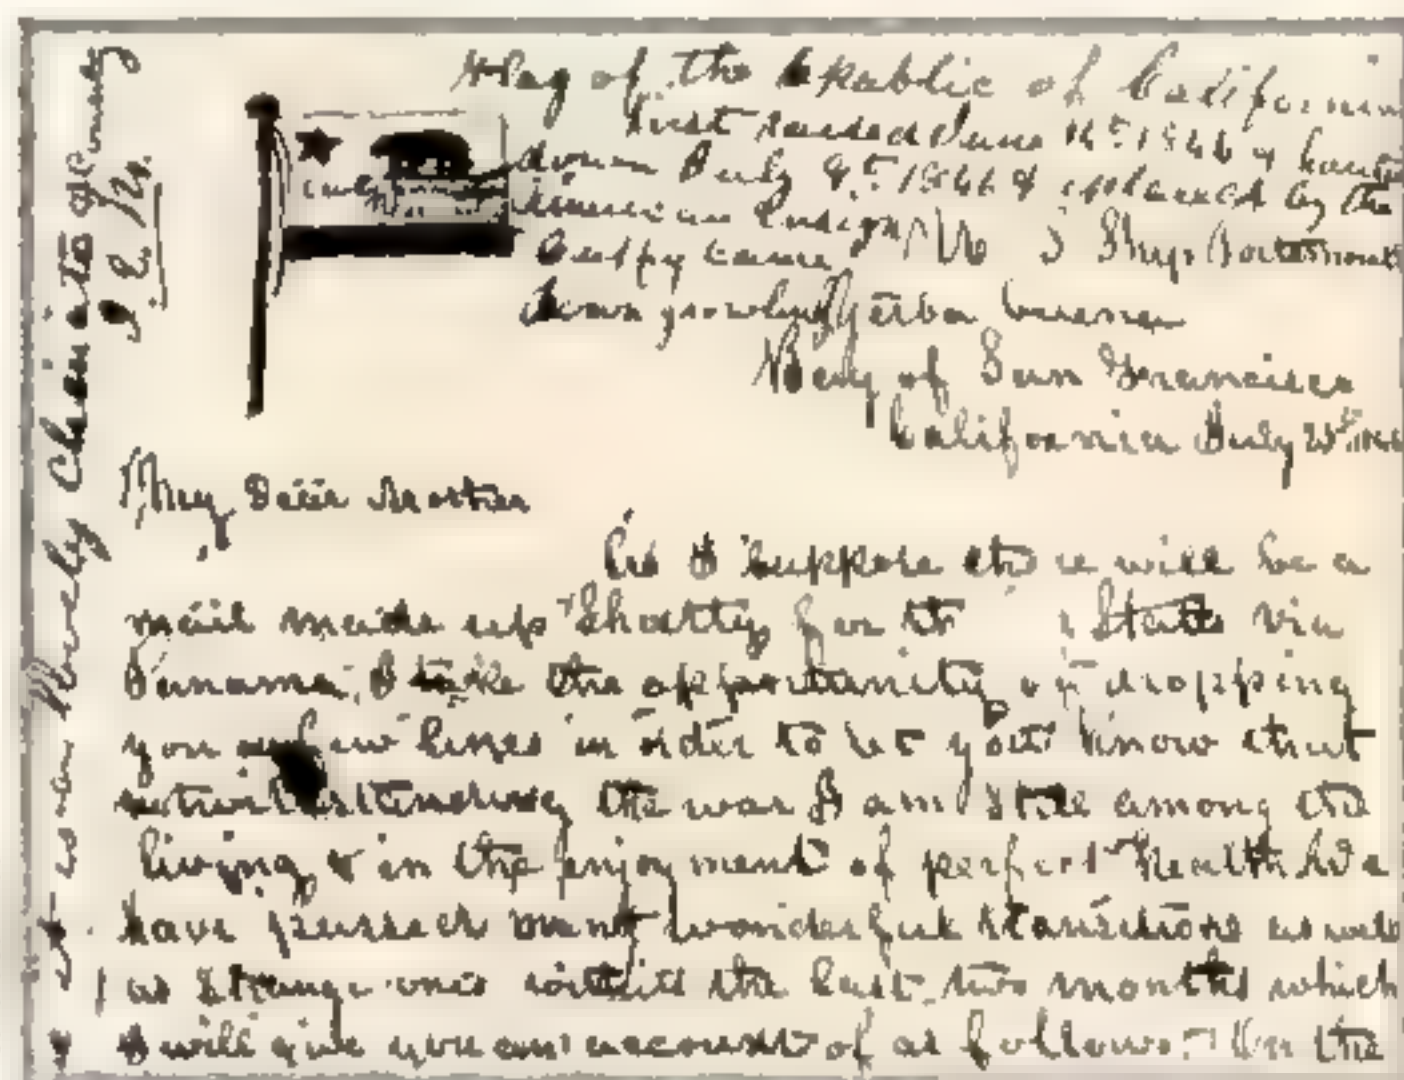 Flag of the Republic of California
first raised June 14th 1846 & hauled
down July 9th 1846 & replaced by the
American Ensign U S Ship Portsmouth
Cuffy came
down growling
Yerba Buena
Bay of San Francisco
California July
My Dear Mother
As I suppose there will be a
mail made up shortly for the States via
Panama, I take the opportunity of dropping
you a few lines in order to let you know that
notwithstanding the war I am still among the
living & in the enjoyment of perfect health We
have passed many wonderful transitions as well
as strange ones within the last two months which
I will give you an account of as follows: On the